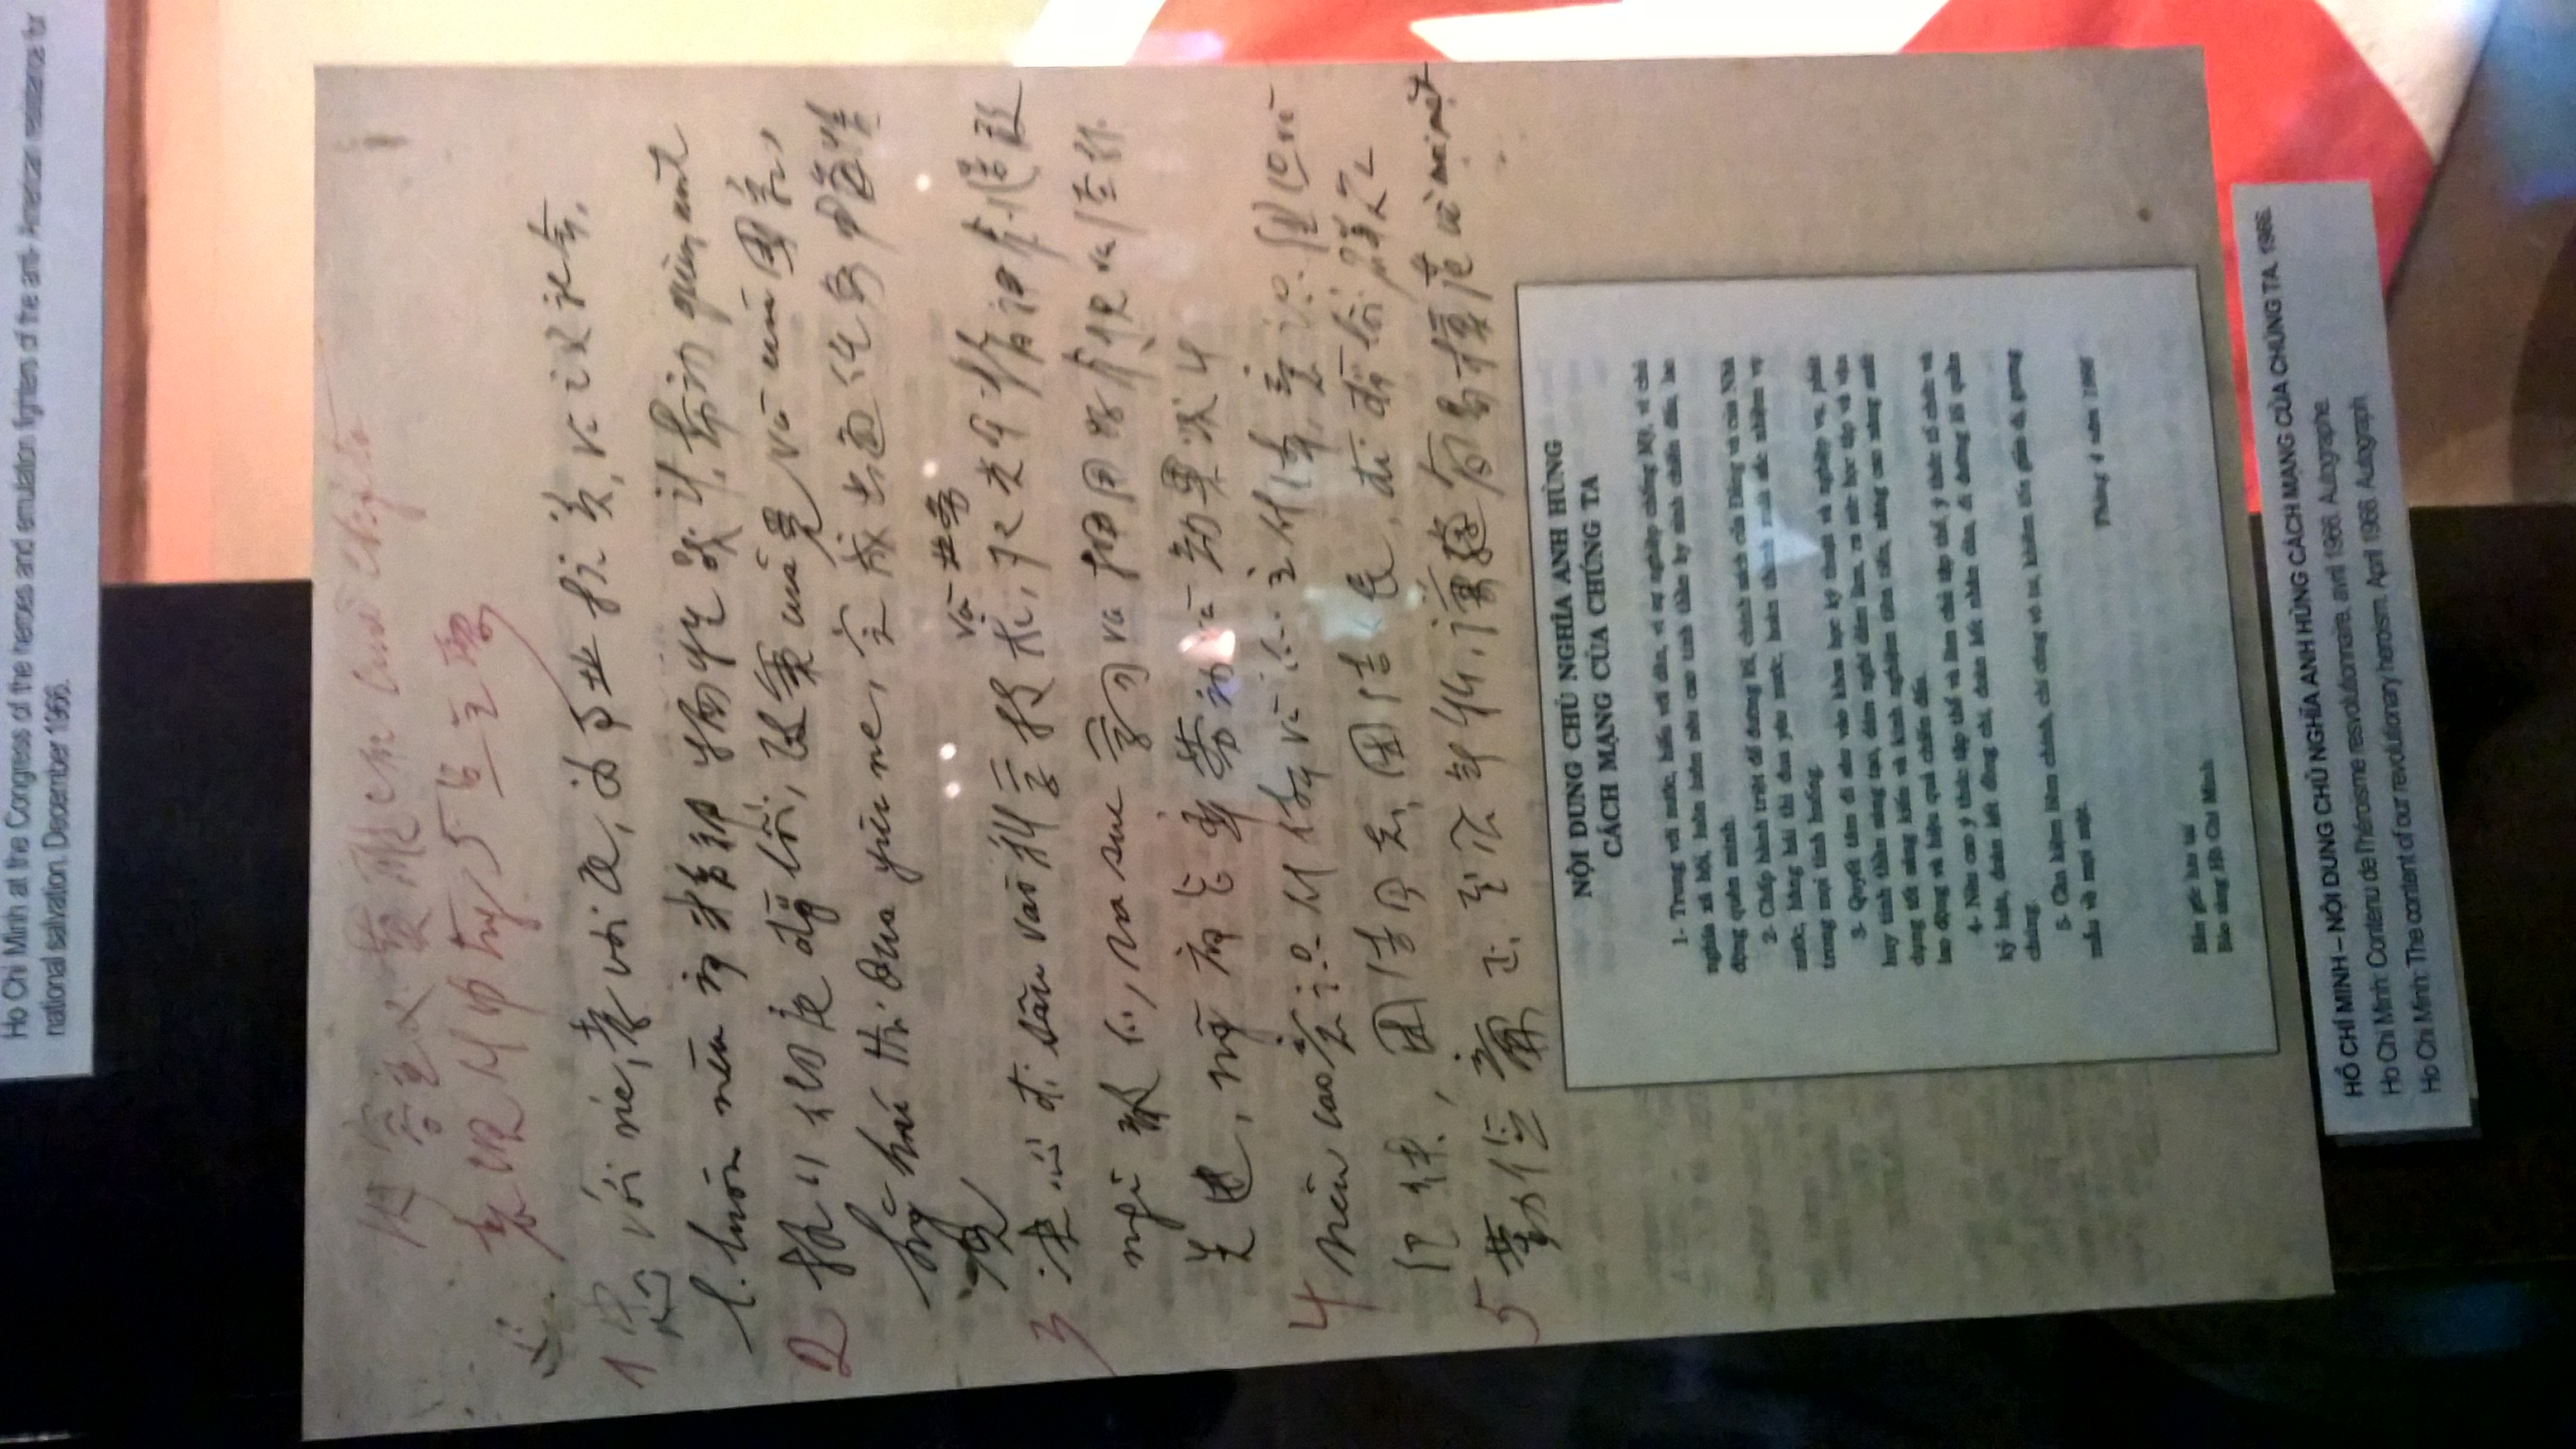 Ho Chi Minh at the Congress of the heroes and emulation fighters of the anti- American resistance for
national salvation. December 1966.
容主义英雄
表现 5 主要
1 忠 với nc, 孝 với 民, 为事业抗美, vì 主义社会,
l. luôn nêu 高精神牺牲战斗, 劳动 quên mình
2 执行彻底 đg lối, 政策 của 党 và của 国家,
hăng hái thi đua yêu nc, 完成出色任务中每情
况
và 业务
3 决心 đi sâu vào 科学技术,
nghĩ 敢, ra sức 学习 và 用好 và
先进, 劳动 và 效果战斗
4 nêu cao 意识 và 主 意识组织 và
纪律, 团结同志, 团结, đi đg lối 群众
5 勤俭廉正, 至公无私, 谦逊简易模范 về mọi mặt
NỘI DUNG CHỦ NGHĨA ANH HÙNG
CÁCH MẠNG CỦA CHÚNG TA
1- Trung với nước, hiếu với dân, vì sự nghiệp chống Mỹ, vì chủ
nghĩa xã hội, luôn luôn nêu cao tinh thần hy sinh chiến đấu, lao
động quên mình.
2- Chấp hành triệt để đường lối, chính sách của Đảng và của Nhà
nước, hăng hái thi đua yêu nước, hoàn thành xuất sắc nhiệm vụ
trong mọi tình huống.
3- Quyết tâm đi sâu vào khoa học kỹ thuật và nghiệp vụ, phát
huy tinh thần sáng tạo, dám nghĩ dám làm, ra sức học tập và vận
dụng tốt sáng kiến và kinh nghiệm tiên tiến, nâng cao năng suất
lao động và hiệu quả chiến đấu.
4- Nêu cao ý thức tập thể và làm chủ tập thể, ý thức tổ chức và
kỷ luật, đoàn kết đồng chí, đoàn kết nhân dân, đi đường lối quần
chúng.
5- Cần kiệm liêm chính, chí công vô tư, khiêm tốn giản dị, gương
mẫu về mọi mặt.
Tháng 4 năm 1966
Bản gốc lưu tại
Bảo tàng Hồ Chí Minh
HỒ CHÍ MINH – NỘI DUNG CHỦ NGHĨA ANH HÙNG CÁCH MẠNG CỦA CHÚNG TA. 1966.
Ho Chi Minh: Contenu de l'héroisme resvolutionnaire, avril 1966. Autographe.
Ho Chi Minh: The content of our revolutionary heroism. April 1966. Autograph